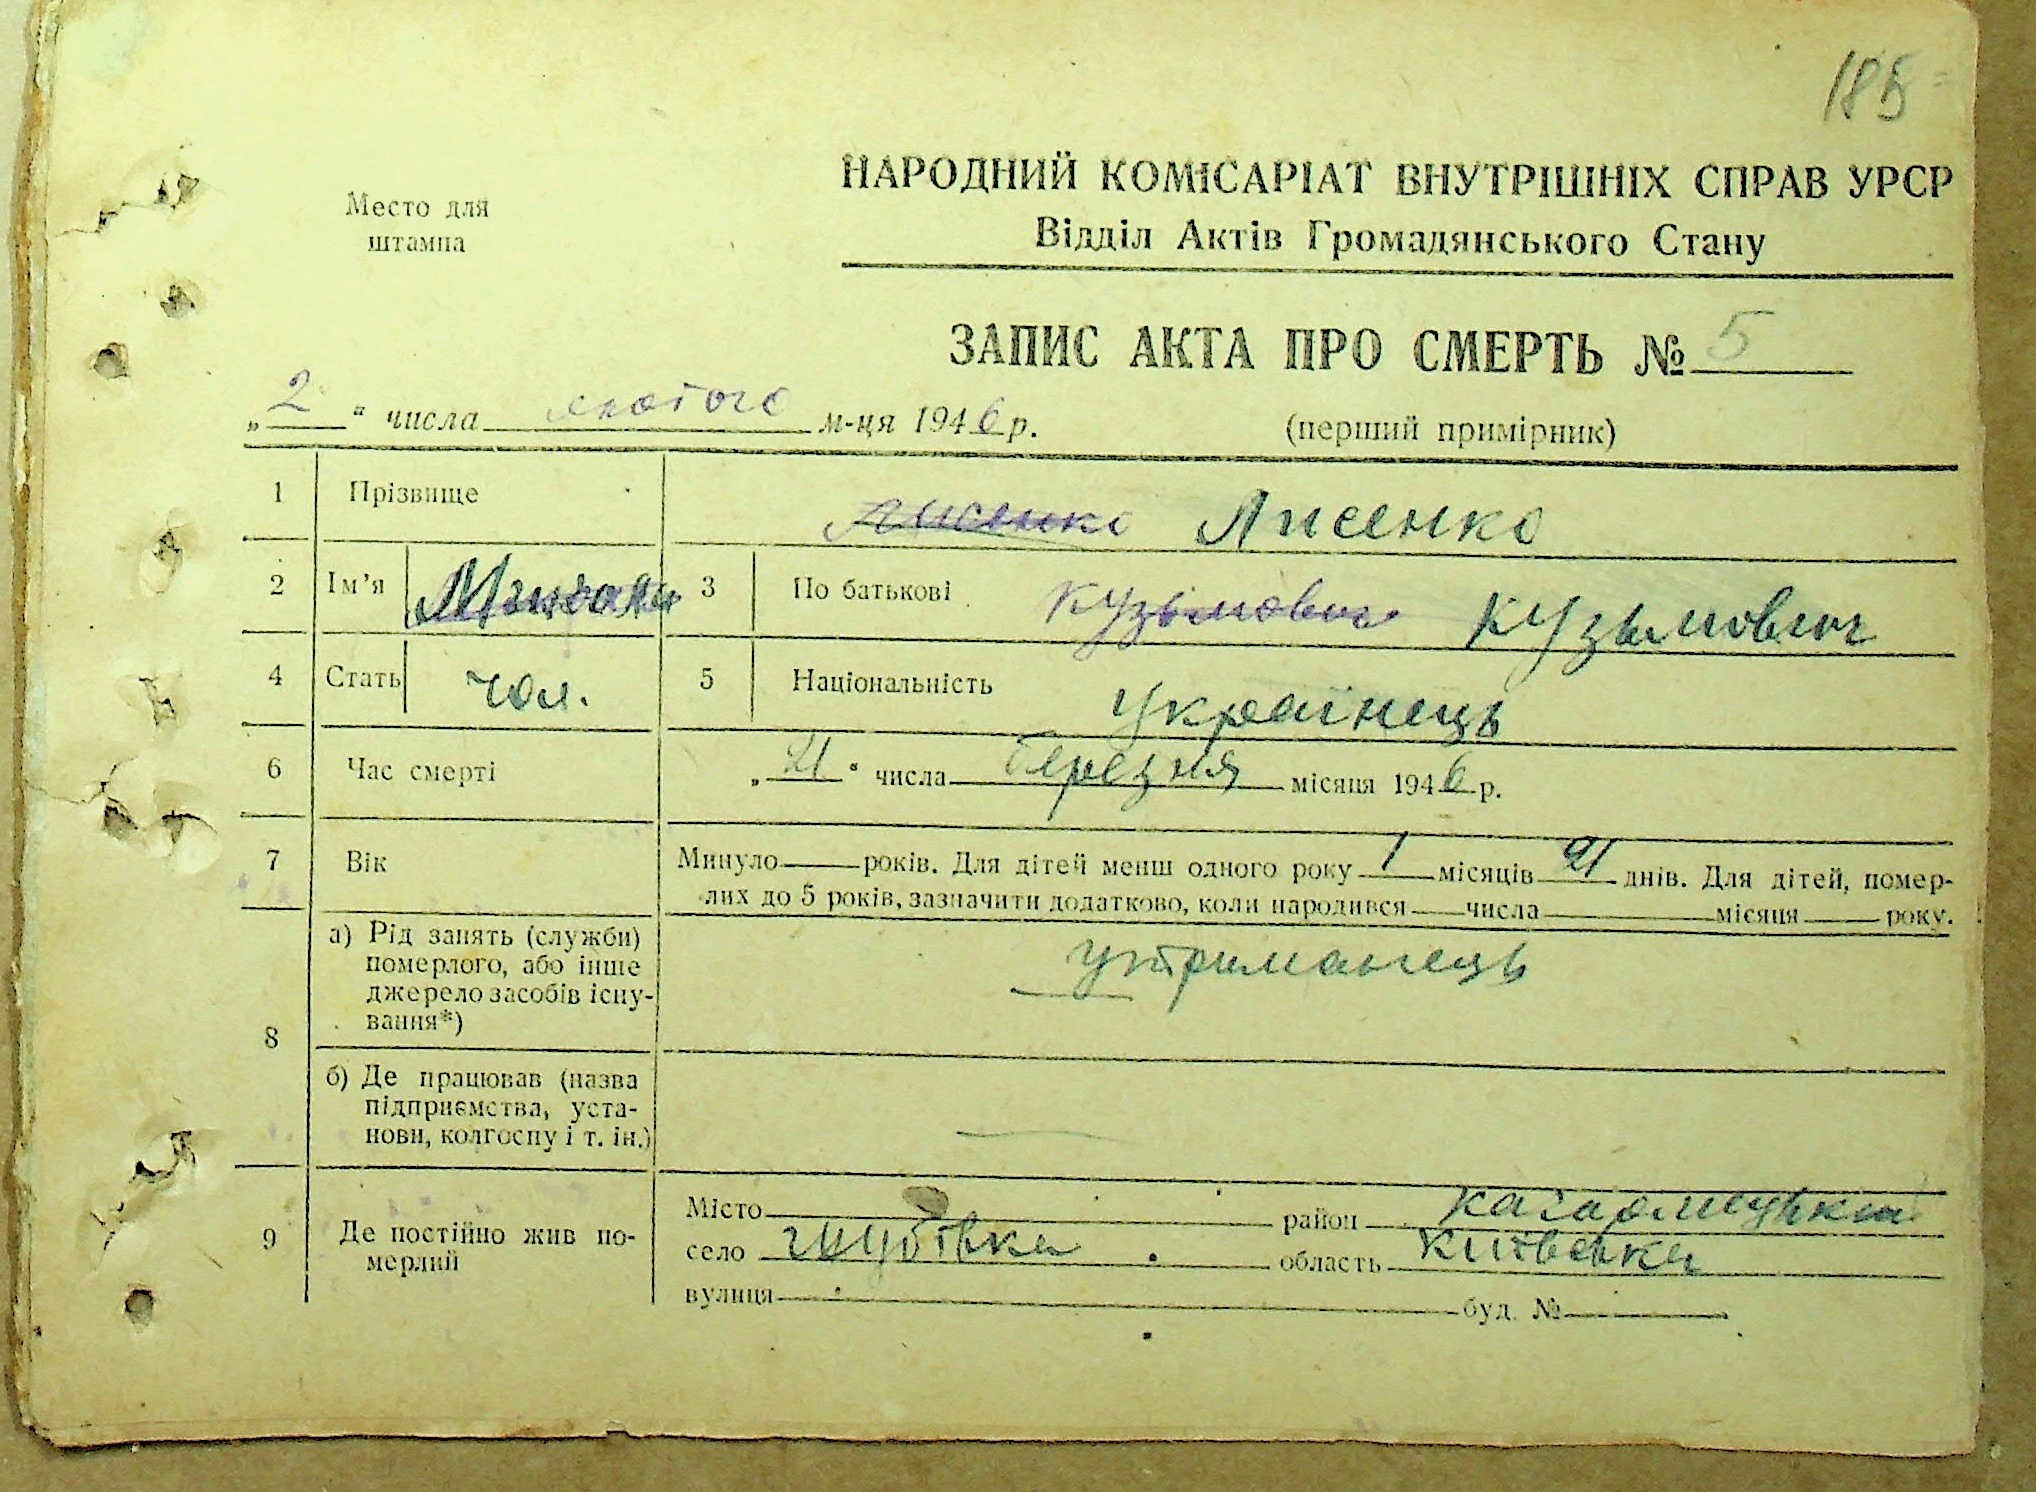 185
Место для
штампа
НАРОДНИЙ КОМІСАРІАТ ВНУТРІШНІХ СПРАВ УРСР
Відділ Актів Громадянського Стану
ЗАПИС АКТА ПРО СМЕРТЬ № 5
„2“ числа лютого м-ця 1946 р. (перший примірник)
1 Прізвище Лисенко Лисенко
2 Ім’я Микола 3 По батькові Кузьмович Кузьмович
4 Стать чол. 5 Національність Українець
6 Час смерті „21“ числа березня місяця 1946 р.
7 Вік Минуло років. Для дітей менш одного року 1 місяців 21 днів. Для дітей, помер-
лих до 5 років, зазначити додатково, коли народився числа місяця року.
8 а) Рід занять (служби) утриманець
померлого, або інше
джерело засобів існу-
вання*)
б) Де працював (назва
підприємства, уста-
нови, колгоспу і т. ін.)
9 Де постійно жив по-
мерлий
Місто район Кагарлицький
село область Київська
вулиця буд. №